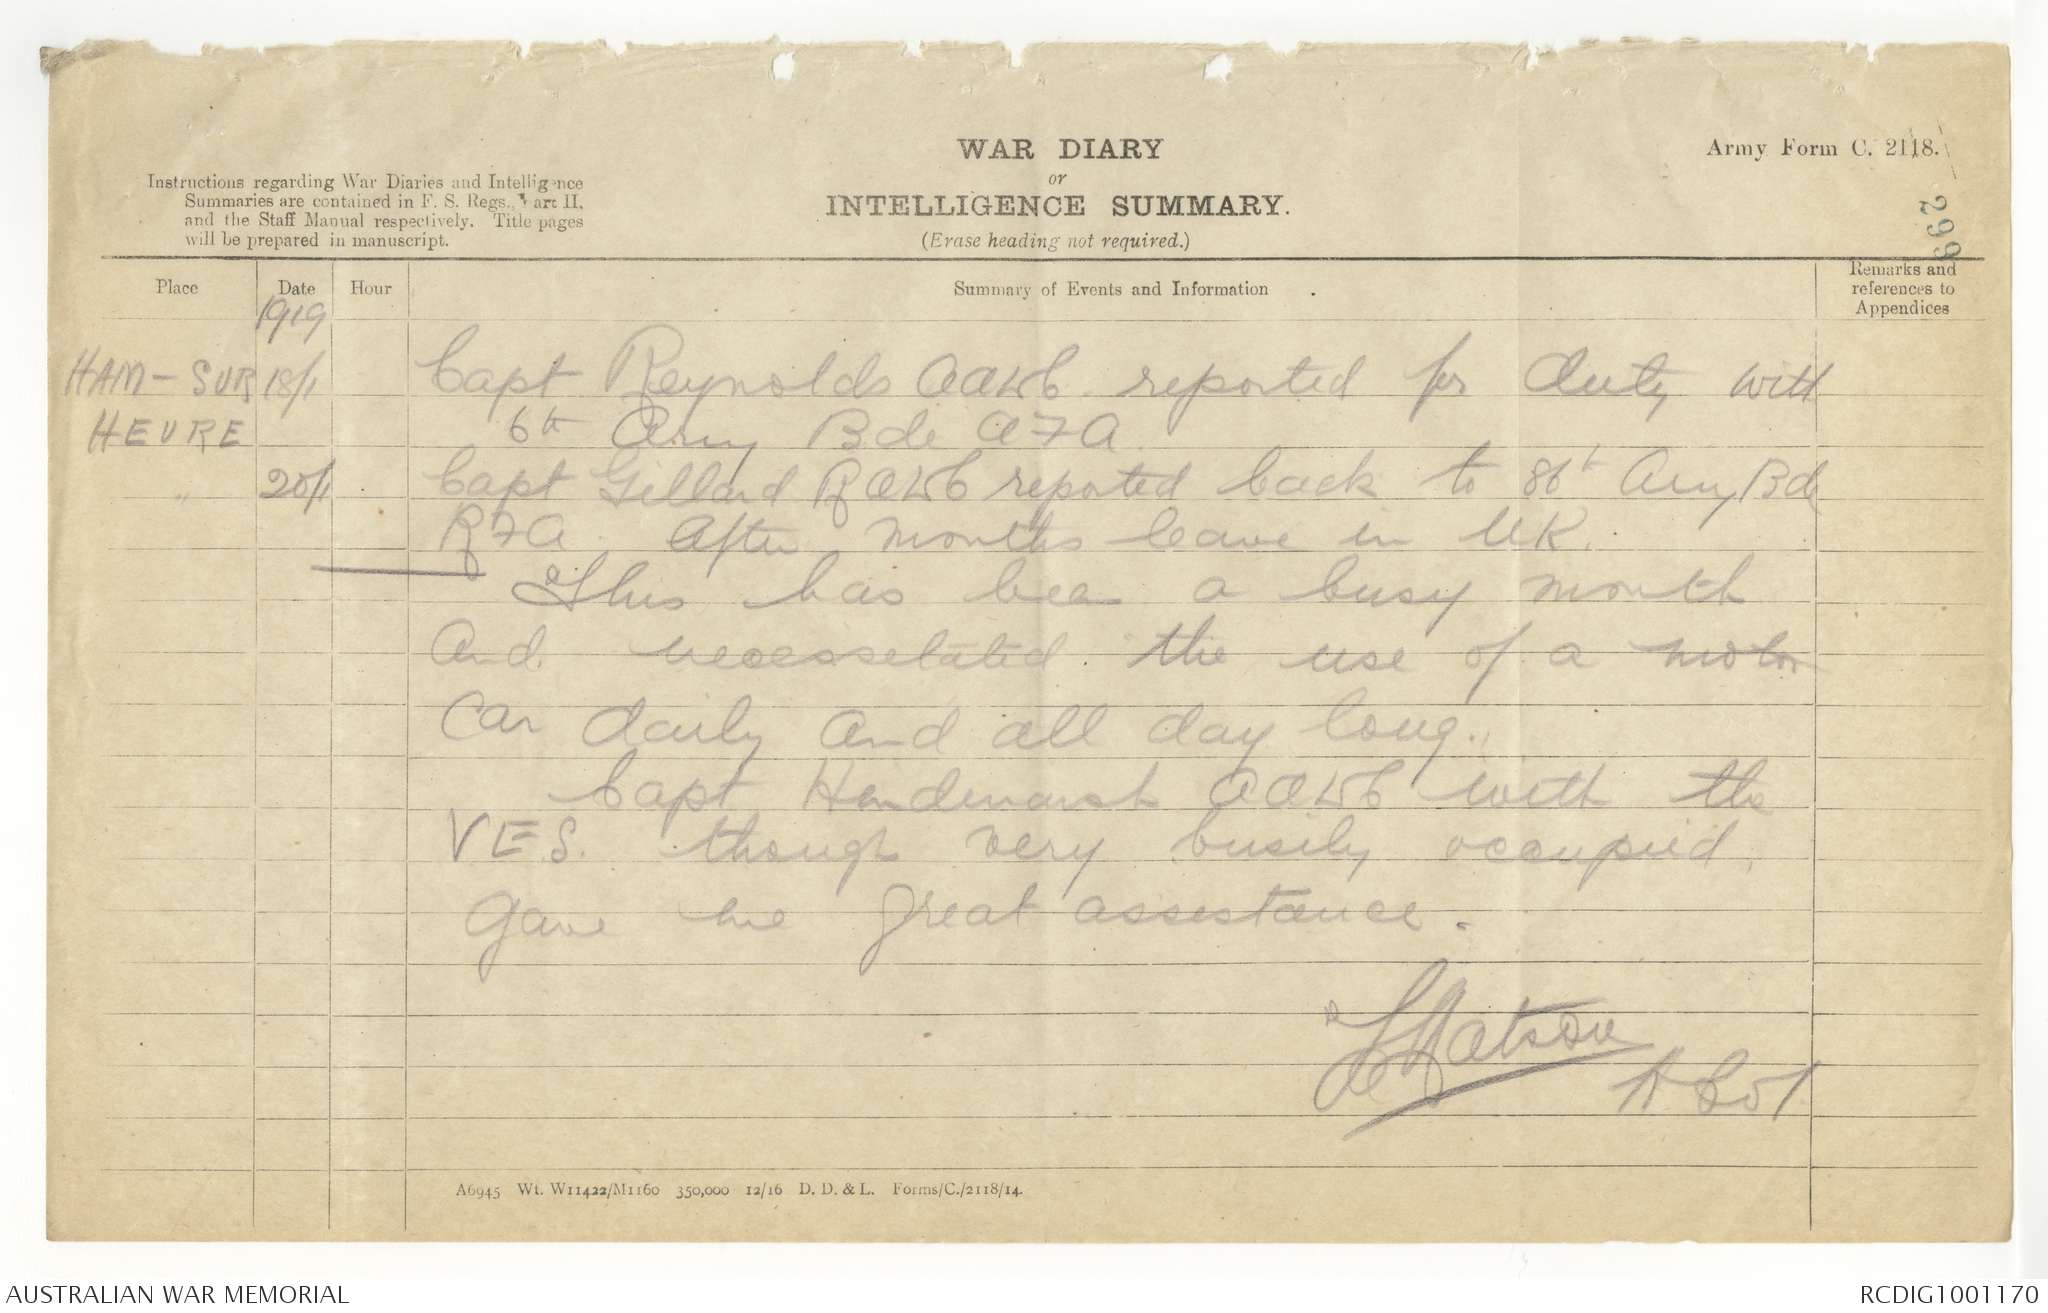 WAR DIARY
or
INTELLIGENCE SUMMARY.
(Erase heading not required.)
Army Form C. 2118.
299
Instructions regarding War Diaries and Intelligence
Summaries are contained in F. S. Regs., Part II,
and the Staff Manual respectively. Title pages
will be prepared in manuscript.
Place Date Hour Summary of Events and Information Remarks and references to Appendices
1919
HAM-SUR 18/1 Capt Reynolds AAVC reported for duty with
HEURE 6th Army Bde AFA
" 20/1 Capt Gillard RAVC reported back to 86th Army Bde
RFA. After months leave in UK.
This has been a busy month
And necesselated the use of a motor
Car daily and all day long.
Capt Hendmarsh AAVC with the
VES. though very busily occupied,
gave me great assestance.
Watson
A6945 Wt. W11422/M1160 350,000 12/16 D. D. & L. Forms/C./2118/14.
AUSTRALIAN WAR MEMORIAL
RCDIG1001170